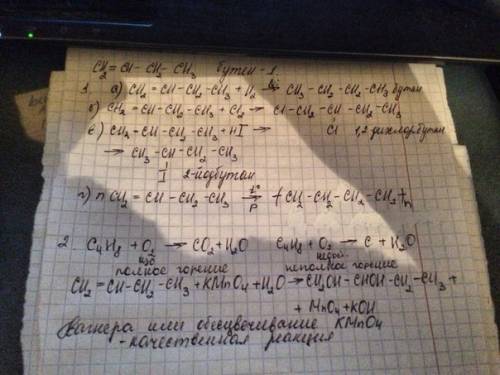 CH2=CH-CH2-CH3 бутен-1.
1. а) CH2=CH-CH2-CH3+H2 → CH3-CH2-CH2-CH3 бутан
б) CH2=CH-CH2-CH3+Cl2→ Cl-CH2-CH-CH2-CH3
Cl 1,2 дихлорбутан
в) CH2-CH-CH2-CH3+HI →
→ CH3-CH-CH2-CH3
I 2-йодбутан
г) n CH2=CH-CH2-CH3 t° → P (-CH2-CH2-CH2-CH2-)n
2. C4H8+O2 → CO2+H2O C4H8+O2 → C+H2O
изб недост.
полное горение неполное горение
CH2=CH-CH2-CH3+KMnO4+H2O→CH2OH-CHOH-CH2-CH3+
+ MnO4+KOH
Вагнера или обесцвечивание KMnO4
-качественная реакция